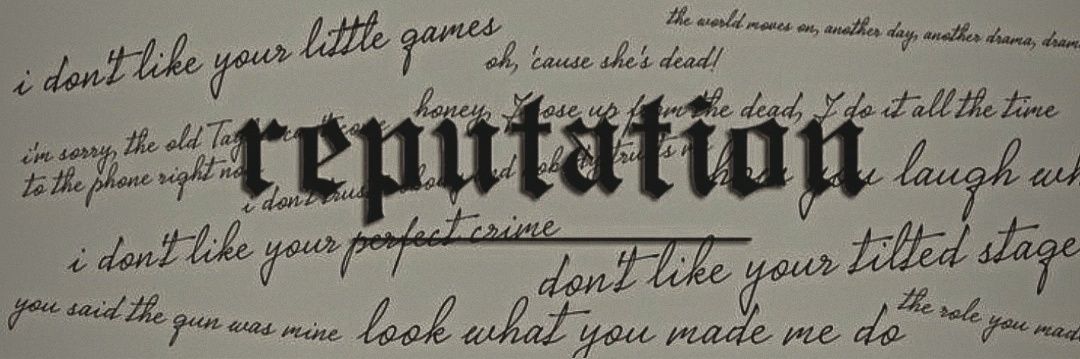 the world moves on, another day, another drama, dram
i don't like your little games
oh, 'cause she's dead!
honey, I rose up from the dead, I do it all the time
reputation
i'm sorry, the old Tay
to the phone right no
i don't trus nobody and nobody trusts me
how you laugh wh
i don't like your perfect crime
don't like your tilted stage
you said the gun was mine
look what you made me do
the role you mad